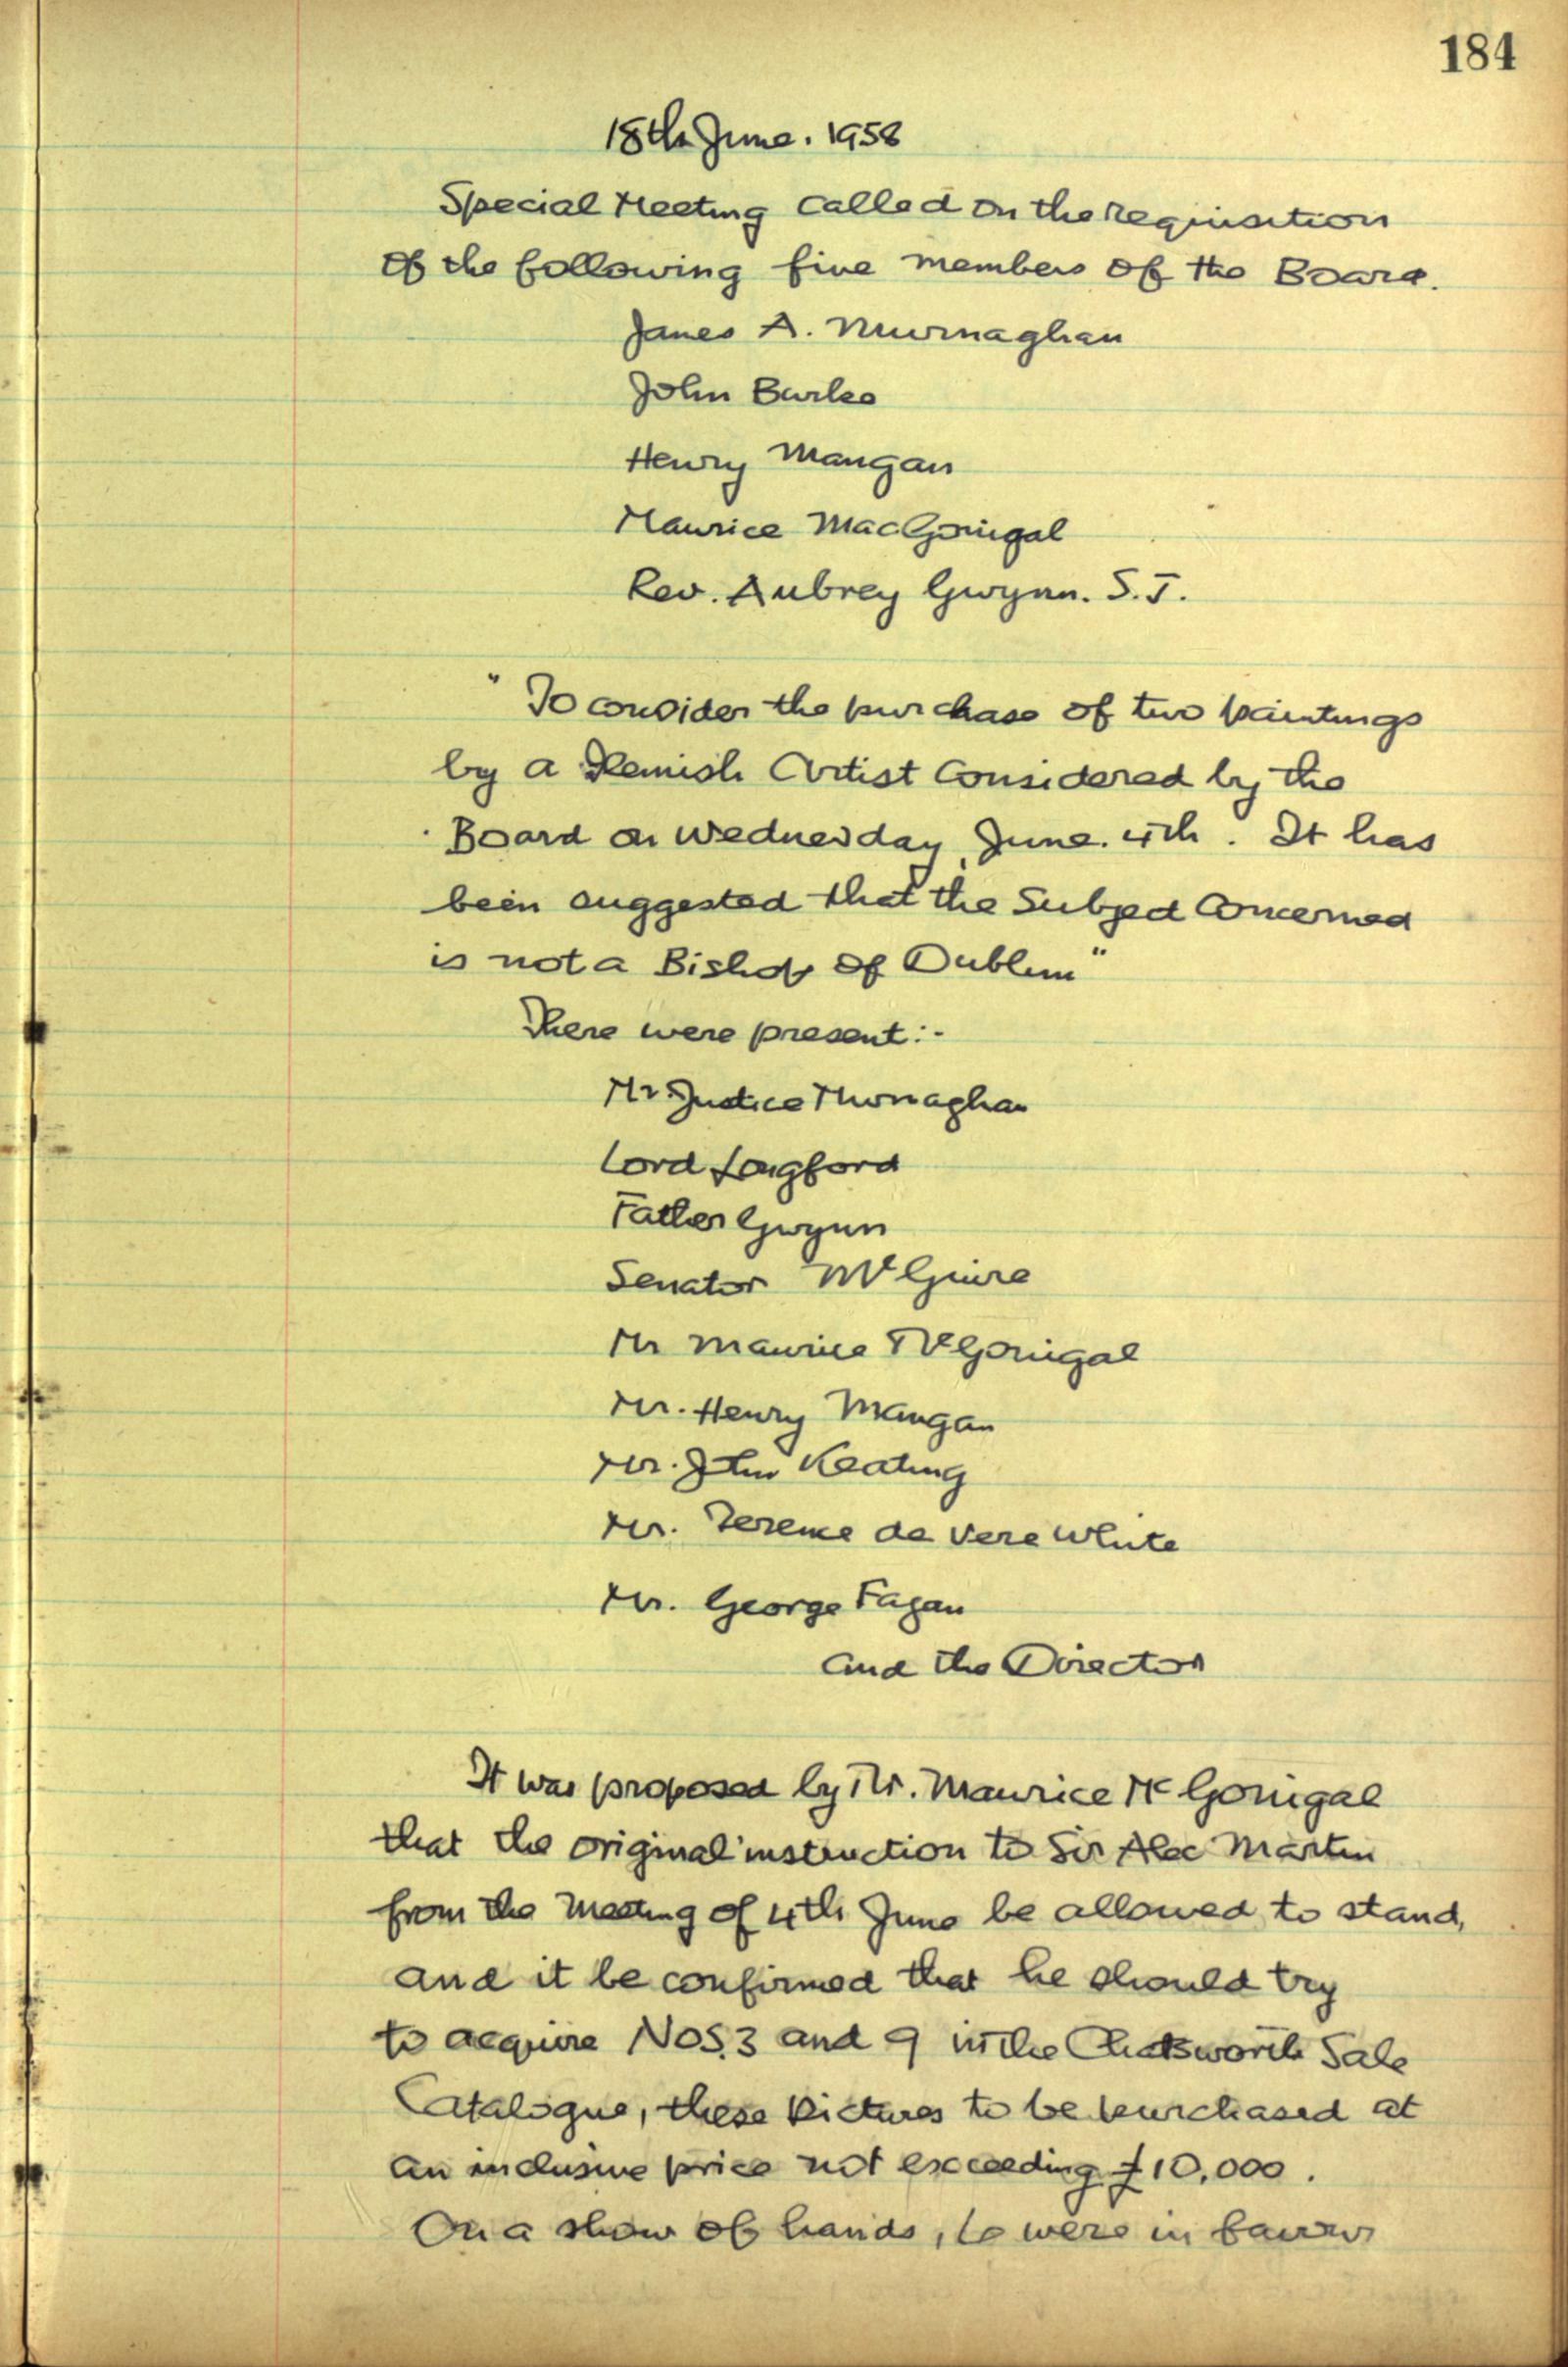 184
18th June. 1958
Special Meeting Called on the requisition
of the following five members of the Board.
James A. Murnaghan
John Burke
Henry Mangan
Maurice MacGonigal
Rev. Aubrey Gwynn. S.J.
" To consider the purchase of two paintings
by a Flemish Artist Considered by the
Board on Wednesday, June. 4th. It has
been suggested that the Subject Concerned
is not a Bishop of Dublin"
There were present:-
Mr Justice Murnaghan
Lord Longford
Father Gwynn
Senator McGuire
Mr Maurice McGonigal
Mr. Henry Mangan
Mr. John Keating
Mr. Terence de Vere White
Mr. George Fagan
and the Director
It was proposed by Mr. Maurice McGonigal
that the original instruction to Sir Alec Martin
from the Meeting of 4th June be allowed to stand,
and it be confirmed that he should try
to acquire NOS. 3 and 9 in the Chatsworth Sale
Catalogue, these Pictures to be purchased at
an inclusive price not exceeding £10,000.
On a show of hands, 6 were in favour